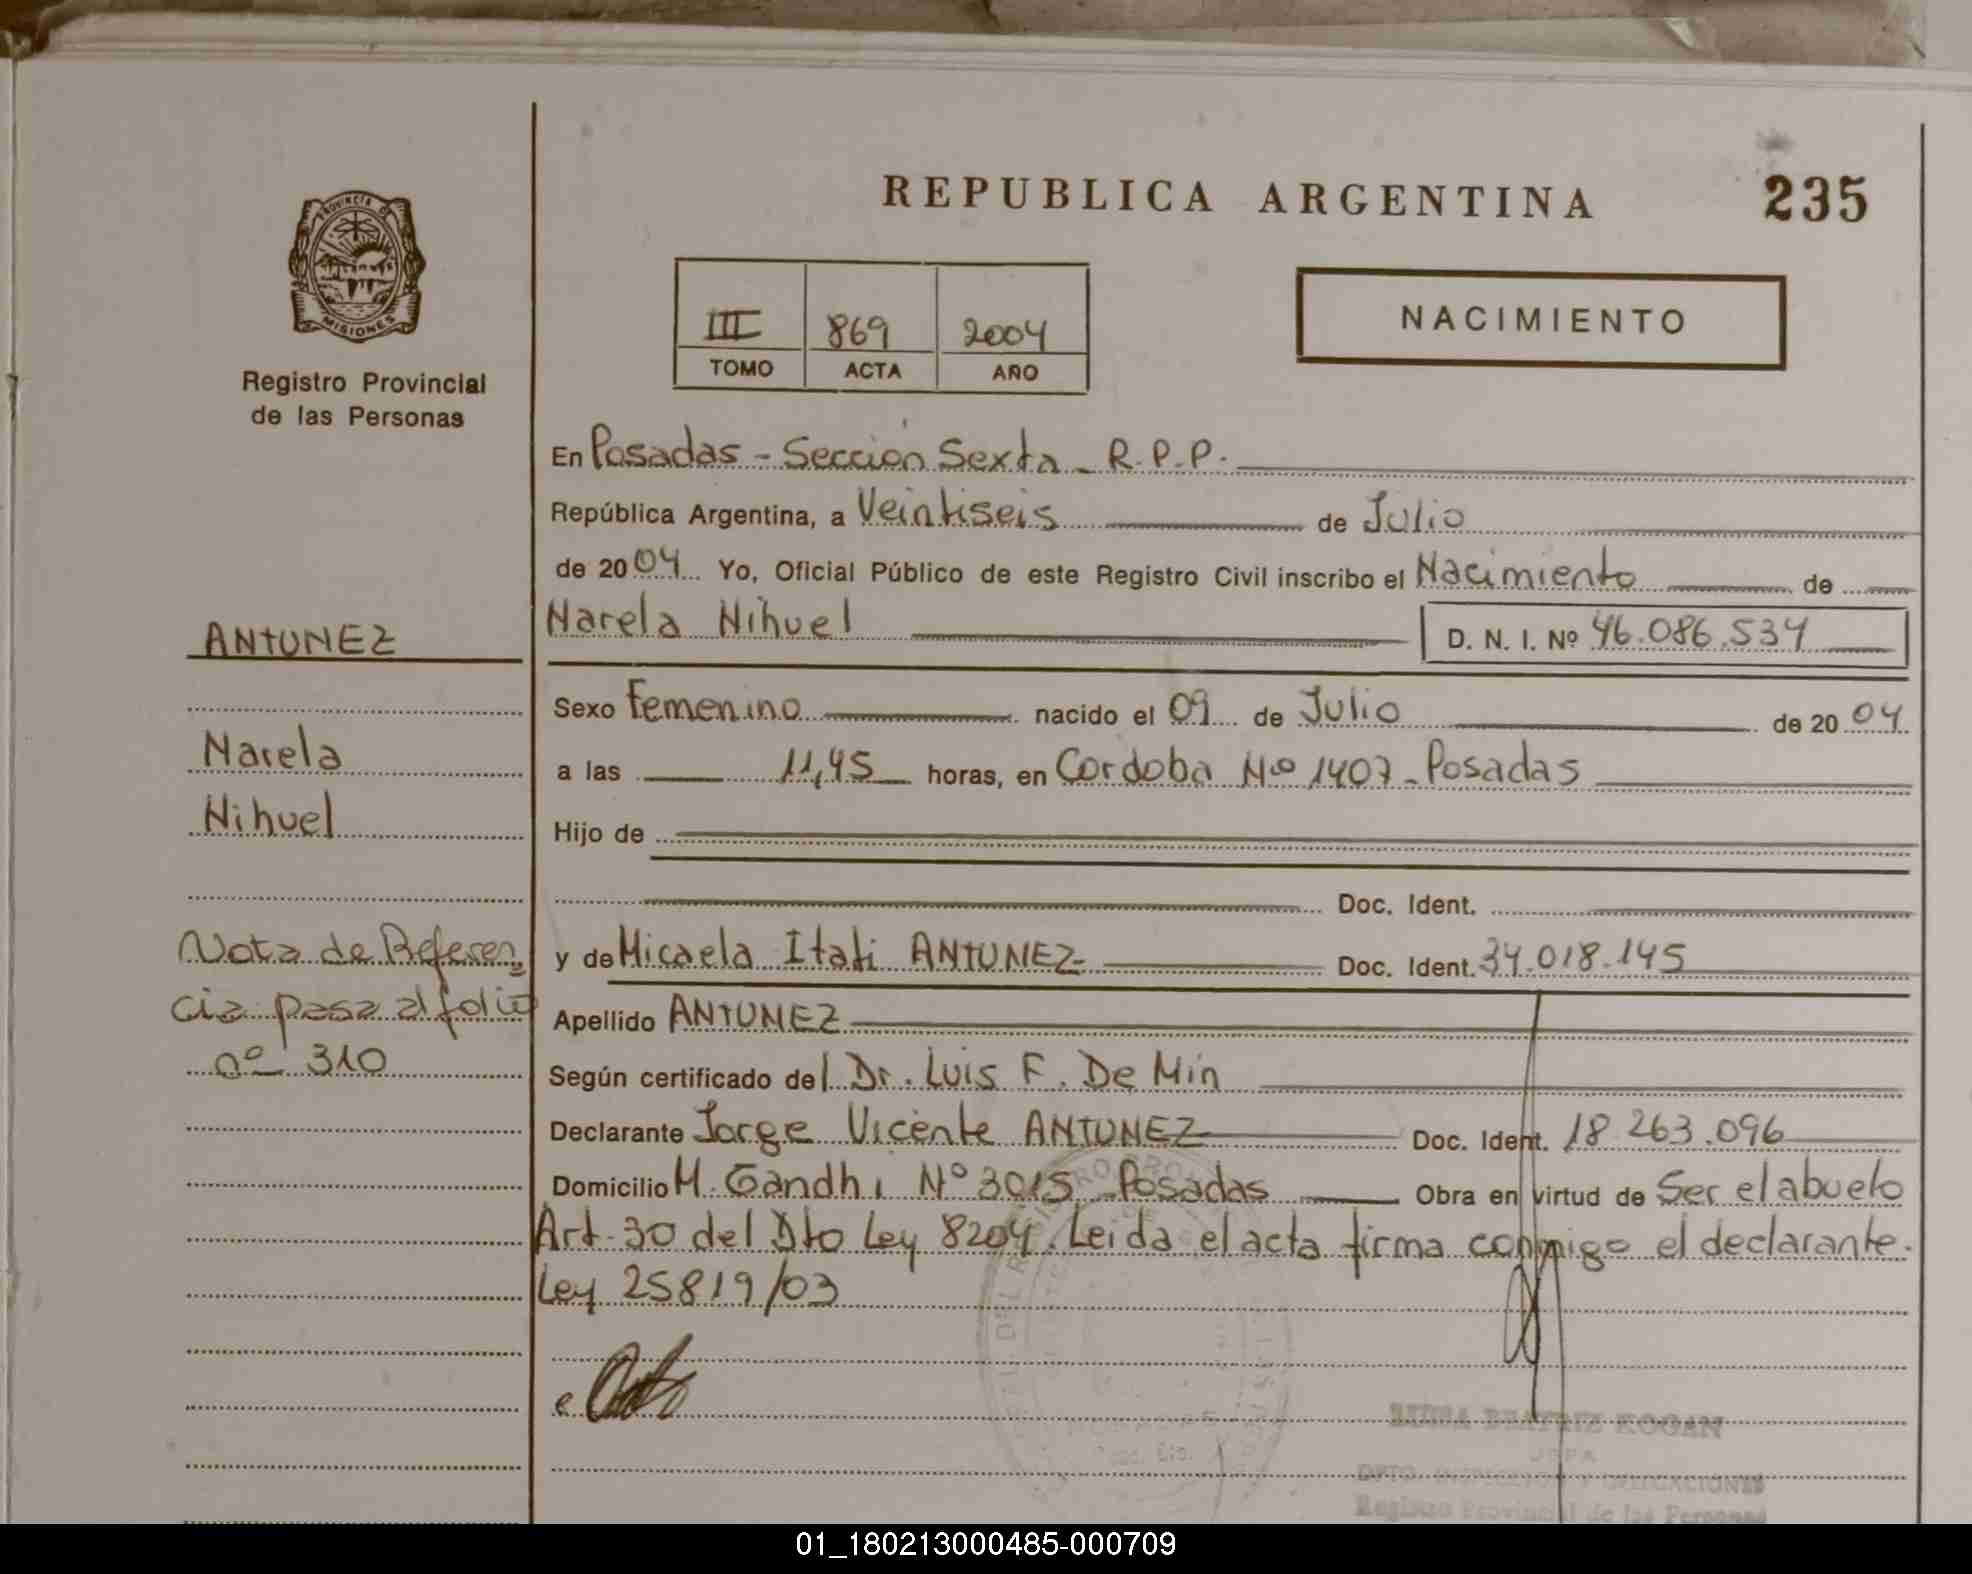 REPUBLICA ARGENTINA
235
PROVINCIA DE
MISIONES
Registro Provincial
de las Personas
III 869 2004
TOMO ACTA AÑO
NACIMIENTO
En Posadas - Sección Sexta - R.P.P.
República Argentina, a Veintiseis de Julio
de 2004 Yo, Oficial Público de este Registro Civil inscribo el Nacimiento de
Narela Nihuel D. N. I. Nº 46.086.534
Sexo Femenino nacido el 09 de Julio de 2004
a las 11,45 horas, en Cordoba Nº 1407 - Posadas
Hijo de
Doc. Ident.
y de Micaela Itati ANTUNEZ - Doc. Ident. 34.018.145
Apellido ANTUNEZ
Según certificado del Dr. Luis F. De Min
Declarante Jorge Vicente ANTUNEZ Doc. Ident. 18.263.096
Domicilio M. Gandhi Nº 3015 - Posadas Obra en virtud de Ser el abuelo
Art. 30 del Dto Ley 8204. Leida el acta firma conmigo el declarante.
Ley 25819/03
ANTUNEZ
Narela
Nihuel
Nota de Referen
cia pasa al folio
nº 310
BEATRIZ KOGAN
JEFA
Registro Provincial de las Personas
01_180213000485-000709